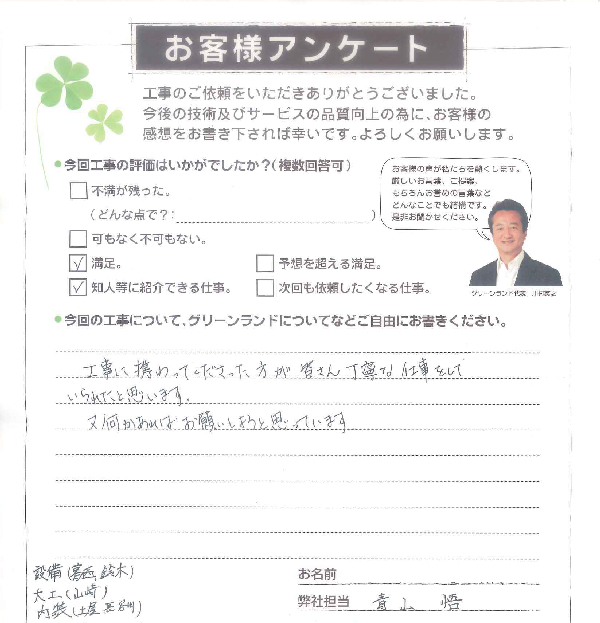 お客様アンケート
工事のご依頼をいただきありがとうございました。
今後の技術及びサービスの品質向上の為に、お客様の
感想をお書き下されば幸いです。よろしくお願いします。
今回工事の評価はいかがでしたか?(複数回答可)
不満が残った。
(どんな点で?: )
可もなく不可もない。
満足。
予想を超える満足。
知人等に紹介できる仕事。
次回も依頼したくなる仕事。
お客様の声が私たちを動くします。
厳しいお言葉、ご提案、
もちろんお誉めの言葉など
どんなことでも結構です。
是非お聞かせください。
グリーンランド代表
今回の工事について、グリーンランドについてなどご自由にお書きください。
工事に携わってくださった方が皆さん丁寧な仕事をして
いられたと思います。
又何かあればお願いしようと思っています
設備(葛西、鈴木)
大工(山崎)
内装(土屋 長谷川)
お名前
弊社担当 青山 悟